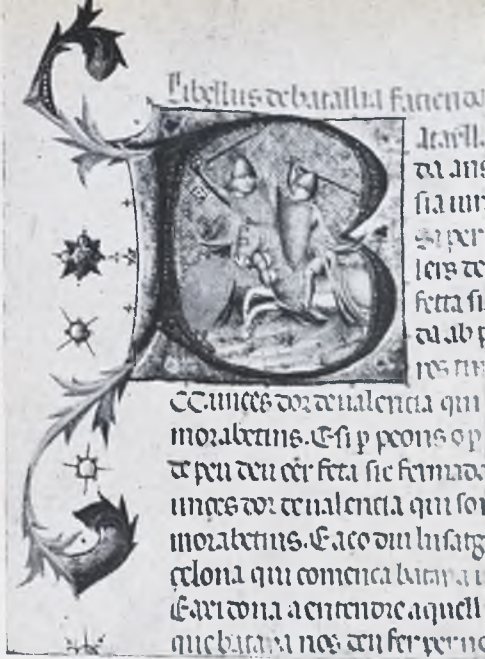 Libellus de batallia facienda
B atayll
da ans
sia iur
Si per
lers de
fetta si
da ab p
res
CC. unces dor de valencia qui
morabetins. E si p peons o p
de peu deu eer feta sie fermada
unces dor de valencia qui son
morabetins. E aço diu lusatg
celona qui comença batay a
E axi dona a entendre aquell
que bataya nos deu fer per ne